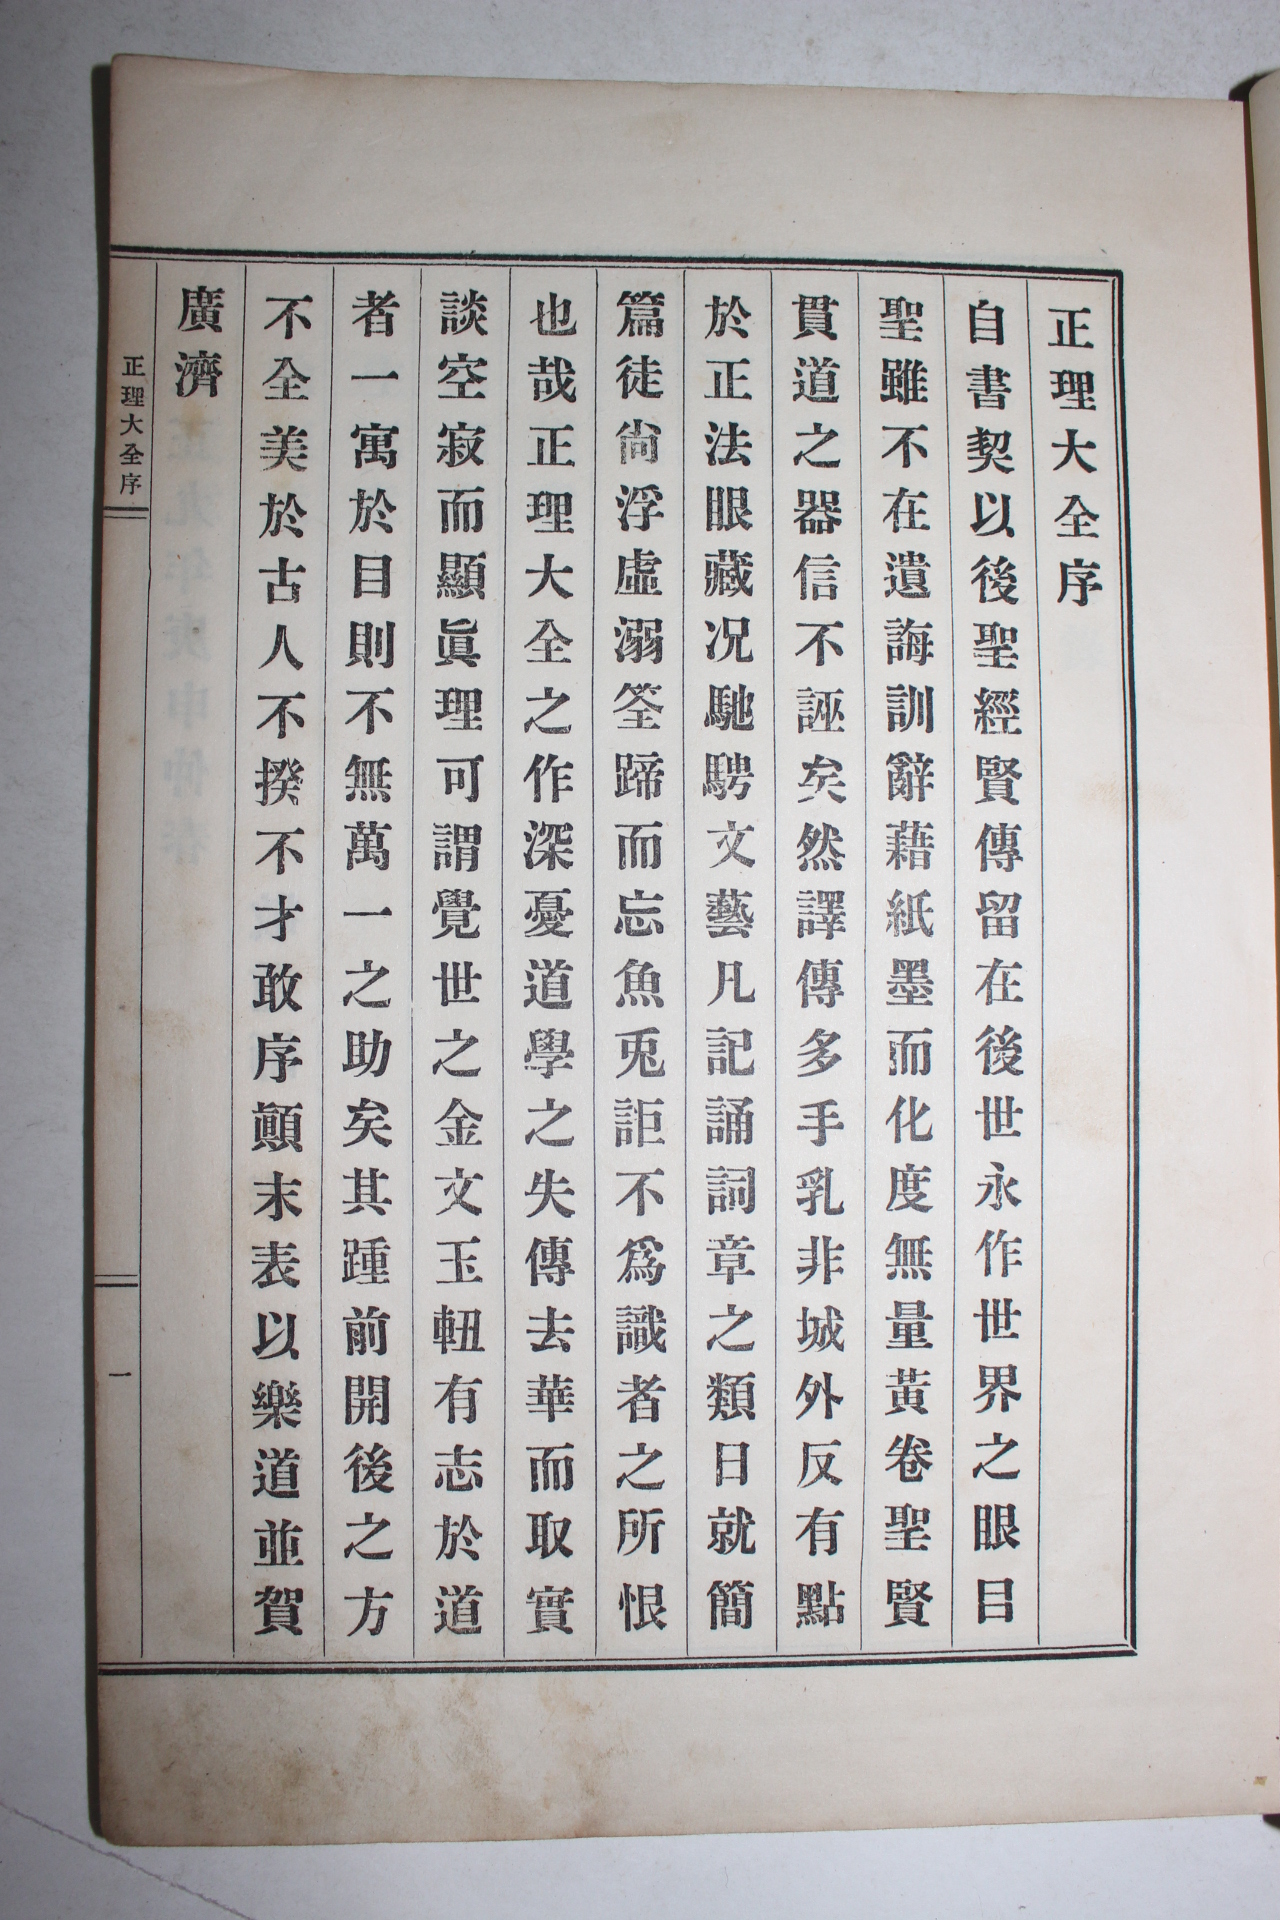 正理大全序
自書契以後聖經賢傳留在後世永作世界之眼目
聖雖不在遺誨訓辭藉紙墨而化度無量黃卷聖賢
貫道之器信不誣矣然譯傳多手乳非城外反有點
於正法眼藏况馳騁文藝凡記誦詞章之類日就簡
篇徒尙浮虛溺筌蹄而忘魚兎詎不爲識者之所恨
也哉正理大全之作深憂道學之失傳去華而取實
談空寂而顯眞理可謂覺世之金文玉軸有志於道
者一寓於目則不無萬一之助矣其踵前開後之方
不全美於古人不揆不才敢序顚末表以樂道並賀
廣濟
正理大全序
一